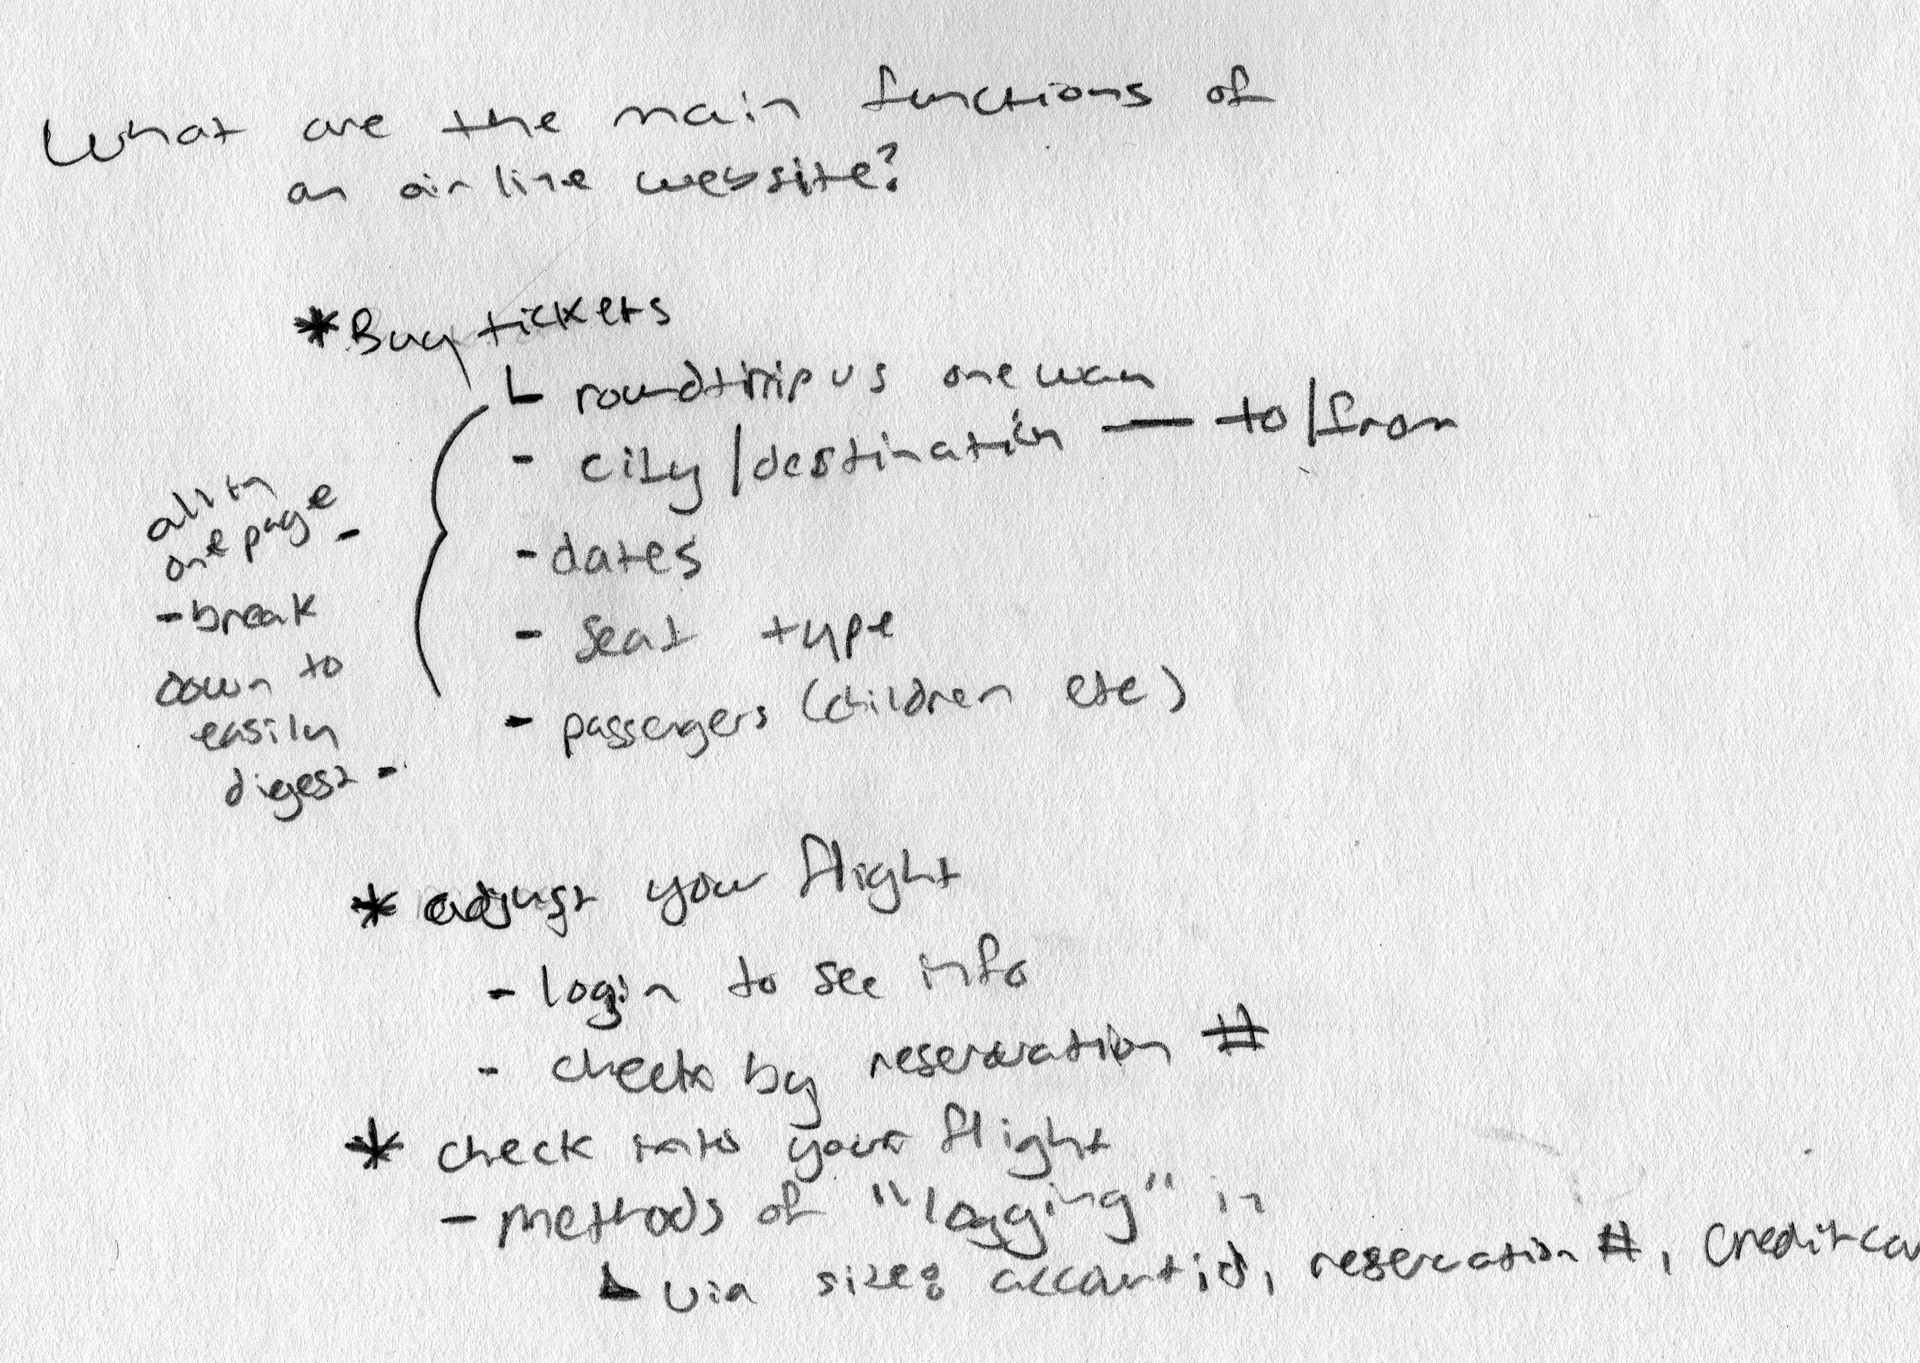 What are the main functions of
an airline website?
* Buy tickets
roundtrip vs one way
- city/destination — to/from
- dates
- seat type
- passengers (children etc)
all in
one page -
- break
down to
easily
digest -
* adjust your flight
- login to see info
- check by reservation #
* check into your flight
- methods of "logging" in
via site: account id, reservation #, credit car